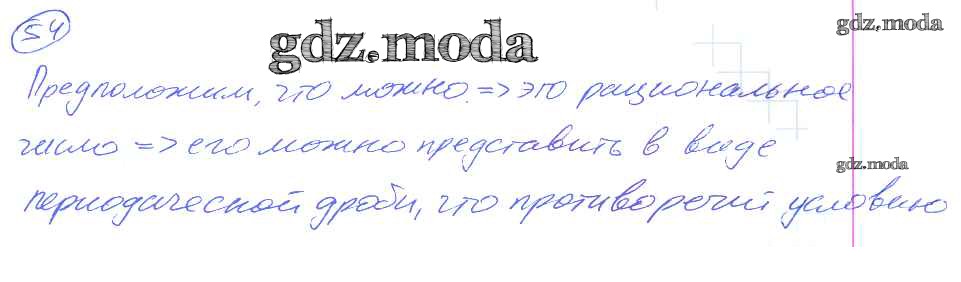 54
gdz.moda
gdz.moda
Предположим, что можно. => это рациональное
число => его можно представить в виде
gdz.moda
периодической дроби, что противоречий условию